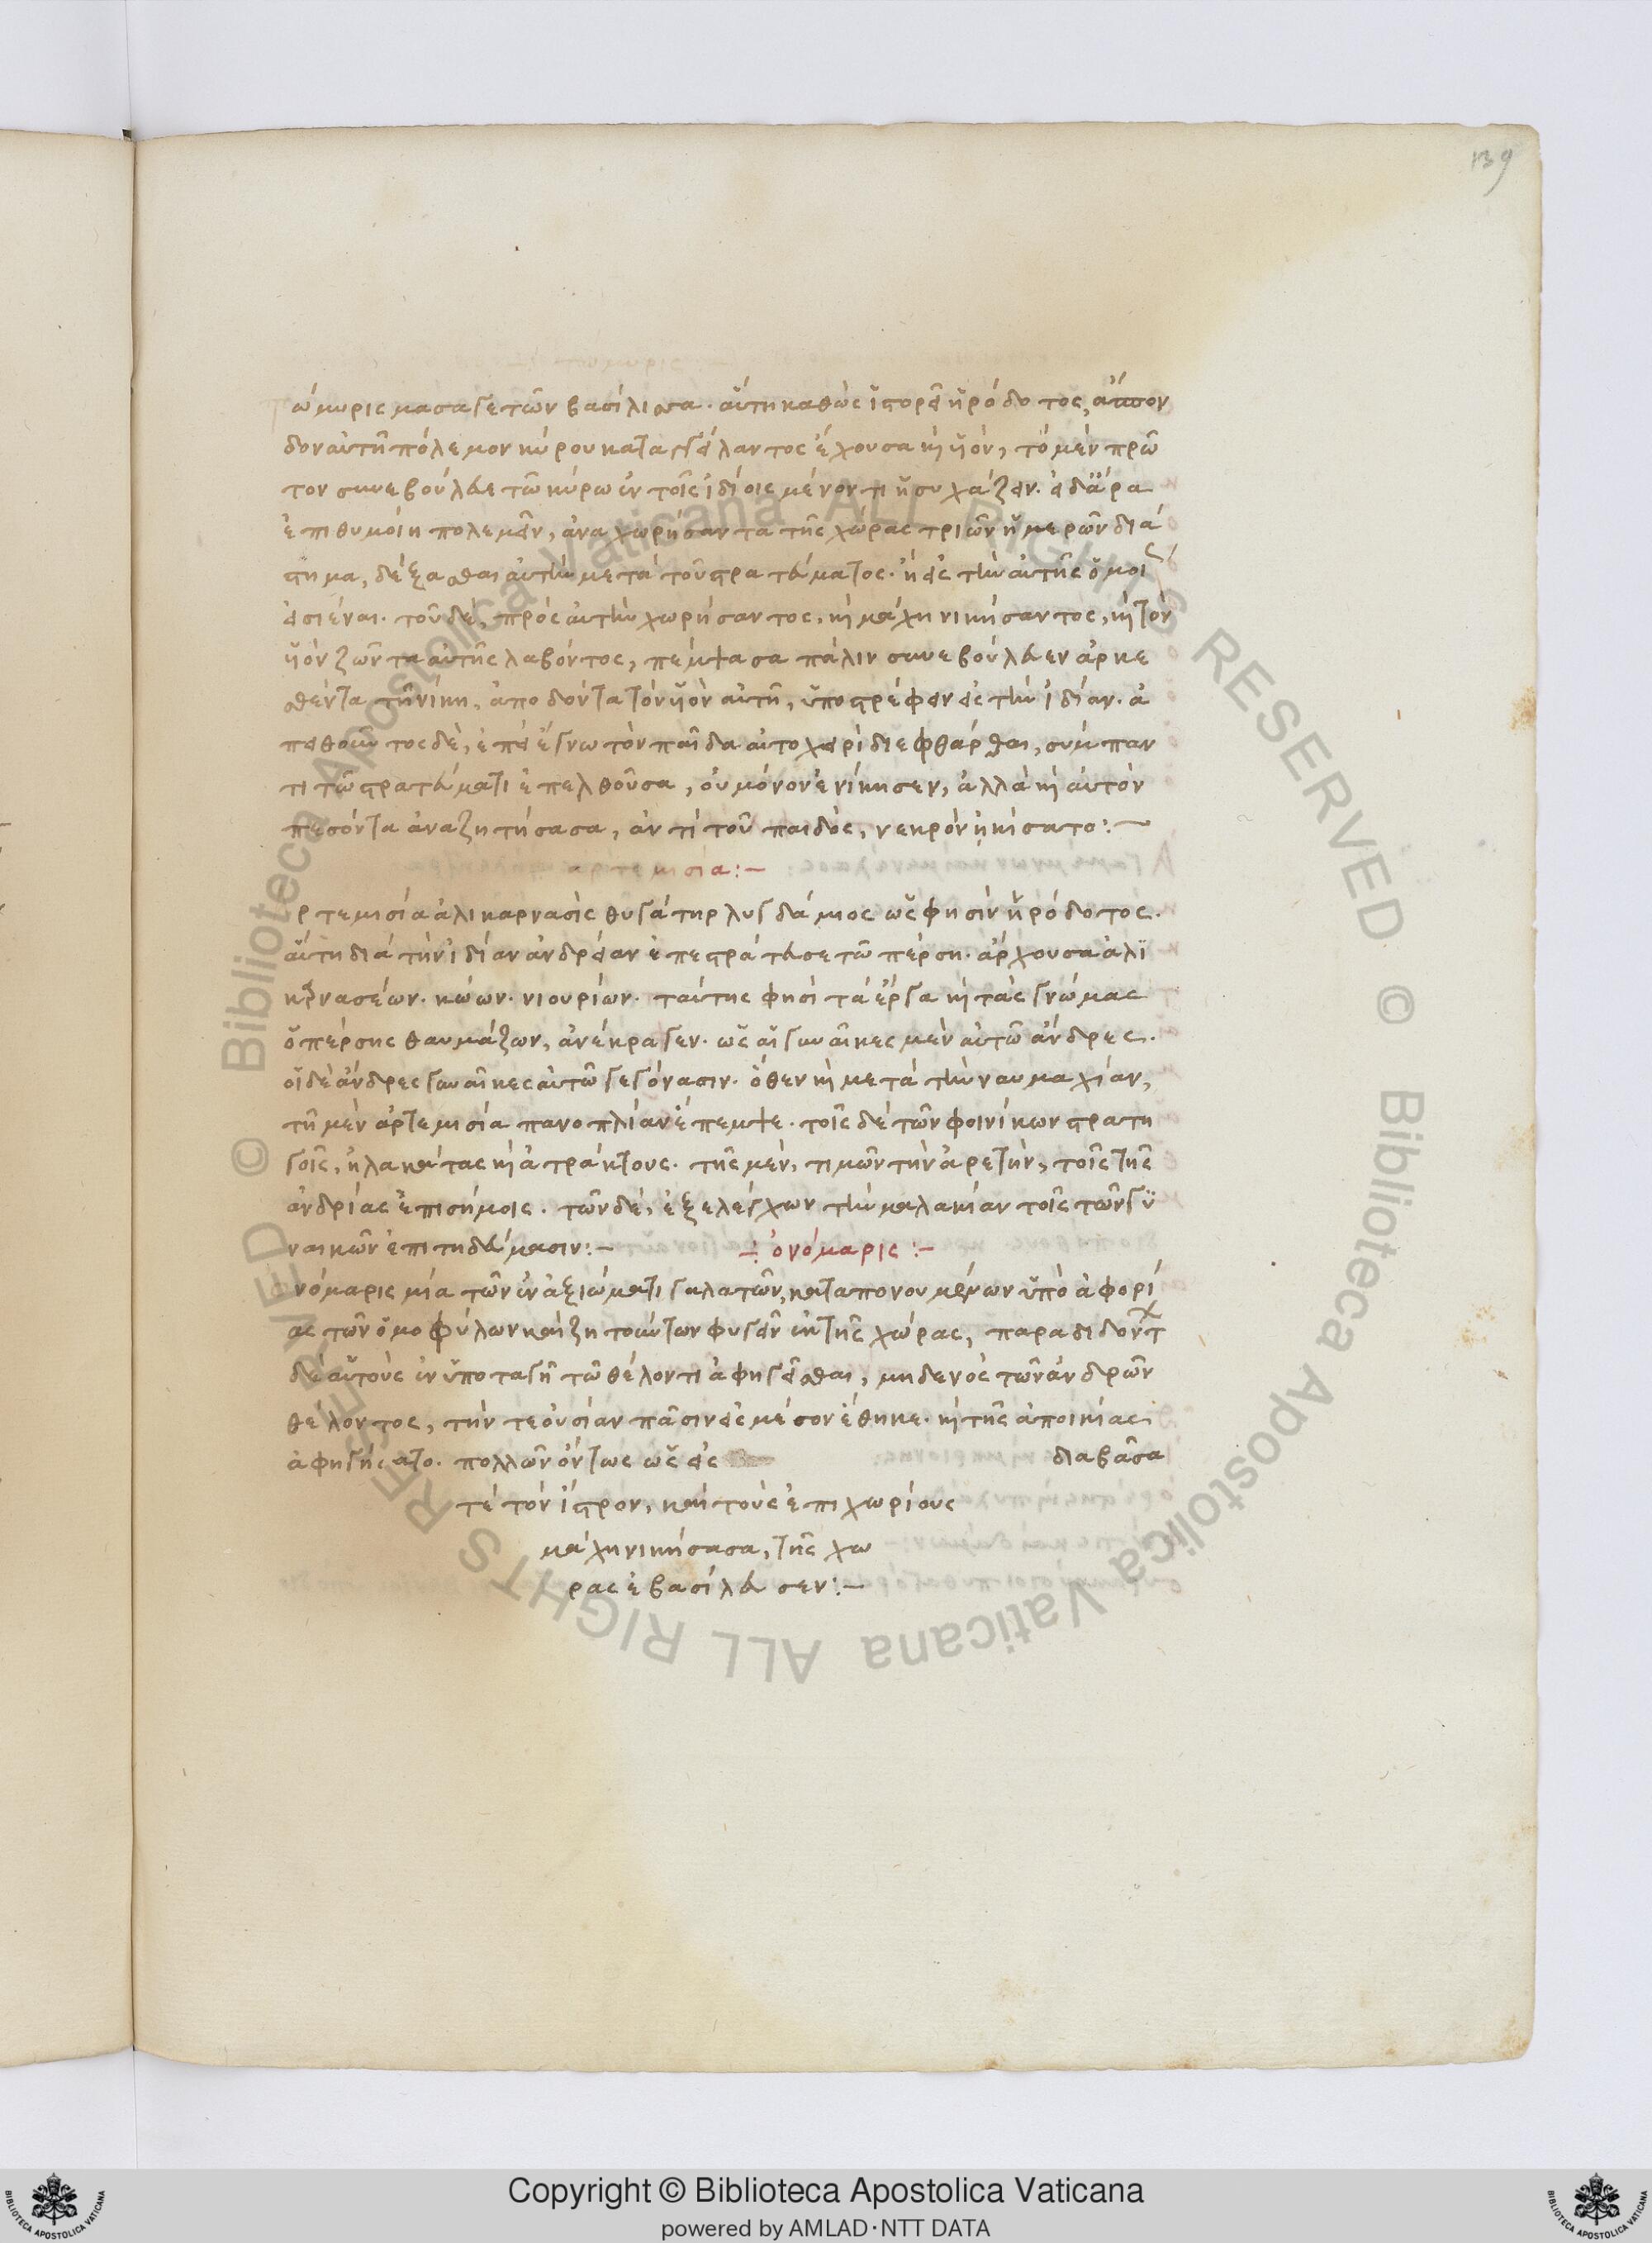 139
τόμυρις
ώμυρις μασαγετῶν βασίλισσα. αὕτη καθὼς ἱστορεῖ ἡρόδοτος, ἄσπον
δον αὐτῆ πόλεμον κύρου καταγγείλαντος ἔχουσα καὶ υἱόν, τὸ μὲν πρῶ
τον συνεβούλευε τῶ κύρω ἐν τοῖς ἰδίοις μένοντι ἡσυχάζειν. εἰ δ' ἄρα
ἐπιθυμοίη πολεμεῖν, ἀναχωρήσαντα τῆς χώρας τριῶν ἡμερῶν διά
στημα, δέξασθαι αὐτὴν μετὰ τοῦ στρατεύματος. ἢ εἰς τὴν αὐτῆς ὁμοί
εἰσιέναι. τοῦ δὲ, πρὸς αὐτὴν χωρήσαντος, καὶ μάχη νικήσαντος, καὶ τὸν
υἱὸν ζῶντα αὐτῆς λαβόντος, πέμψασα πάλιν συνεβούλευεν ἀρκε
σθέντα τῆ νίκη, ἀποδόντα τὸν υἱὸν αὐτῆ, ὑποστρέφειν εἰς τὴν ἰδίαν. ἀ
πειθοῦντος δὲ, ἐπεὶ ἔγνω τὸν παῖδα αὐτοχειρὶ διεφθάρθαι, σύμπαν
τι τῶ στρατεύματι ἐπελθοῦσα, οὐ μόνον ἐνίκησεν, ἀλλὰ καὶ αὐτὸν
πεσόντα ἀναζητήσασα, ἀντὶ τοῦ παιδὸς, νεκρὸν ἠκίσατο:~
ἀρτεμισία:~
ρτεμισία ἁλικαρνασὶς θυγάτηρ λυγδάμιος ὥς φησιν ἡρόδοτος.
αὕτη διὰ τὴν ἰδίαν ἀνδρείαν ἐπεστράτευσε τῶ πέρση. ἄρχουσα ἁλι
καρνασέων. κώων. νισυρίων. ταύτης φησὶ τὰ ἔργα καὶ τὰς γνώμας
ὁ πέρσης θαυμάζων, ἀνέκραγεν. ὡς αἱ γυναῖκες μὲν αὐτῶ ἄνδρες.
οἱ δὲ ἄνδρες γυναῖκες αὐτῶ γεγόνασιν. ὅθεν καὶ μετὰ τὴν ναυμαχίαν,
τῆ μὲν ἀρτεμισία πανοπλίαν ἔπεμψε. τοῖς δὲ τῶν φοινίκων στρατη
γοῖς, ἠλακάτας καὶ ἀτράκτους. τῆς μὲν, τιμῶν τὴν ἀρετὴν, τοῖς τῆς
ἀνδρίας ἐπισήμοις. τῶν δὲ, ἐξελέγχων τὴν μαλακίαν τοῖς τῶν γυ
ναικῶν ἐπιτηδεύμασιν:~ ÷ ὀνόμαρις:~
νόμαρις μία τῶν ἐν ἀξιώματι γαλατῶν, καταπονουμένων ὑπὸ ἀφορί
ας τῶν ὁμοφύλων καὶ ζητούντων φυγεῖν ἐκ τῆς χώρας, παραδιδόντ
δὲ αὑτοὺς ἐν ὑποταγῆ τῶ θέλοντι ἀφηγεῖσθαι, μηδενὸς τῶν ἀνδρῶν
θέλοντος, τήν τε οὐσίαν πᾶσιν εἰς μέσον ἔθηκε. καὶ τῆς ἀποικίας
ἀφηγήσατο. πολλῶν ὄντως ὡς εἰς διαβᾶσα
τὲ τὸν ἴστρον, καὶ τοὺς ἐπιχωρίους
μάχη νικήσασα, τῆς χώ
ρας ἐβασίλευσεν:~
© Biblioteca Apostolica Vaticana ALL RIGHTS RESERVED © Biblioteca Apostolica Vaticana ALL RIGHTS RESERVED
Copyright © Biblioteca Apostolica Vaticana
powered by AMLAD·NTT DATA
BIBLIOTECA APOSTOLICA VATICANA
BIBLIOTECA APOSTOLICA VATICANA